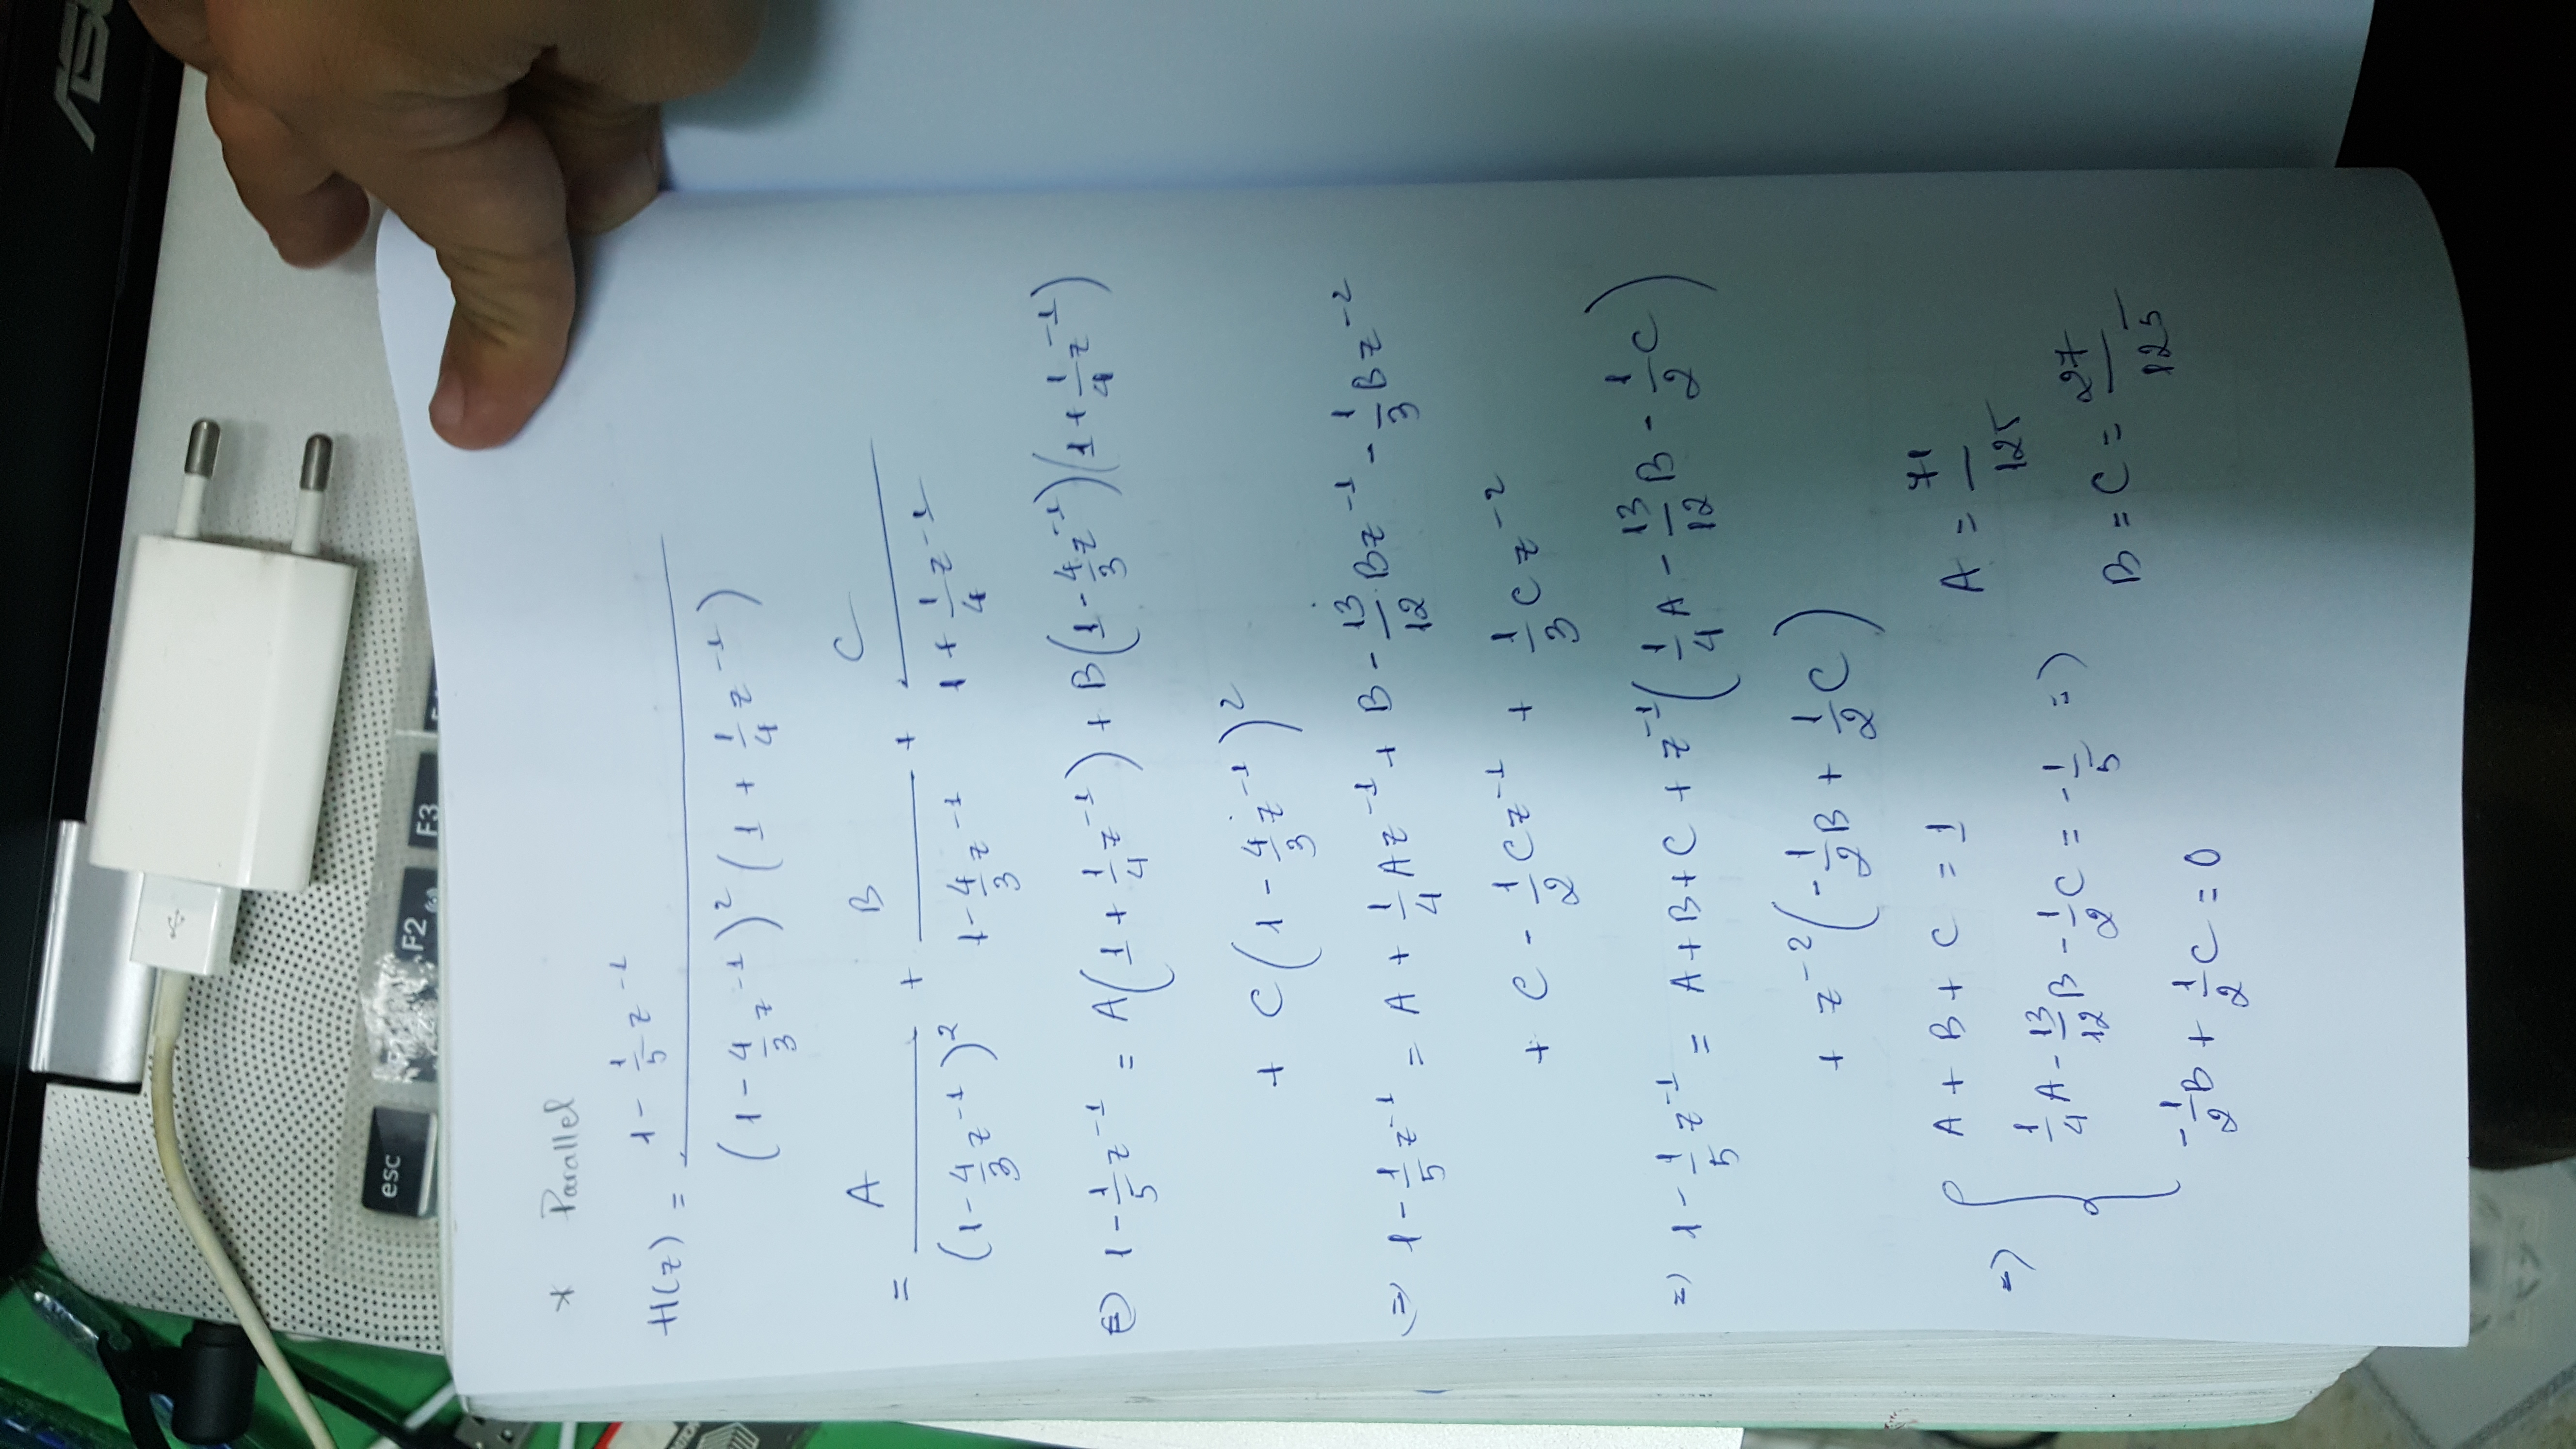 ASU
esc
F2
F3
* Parallel
H(z) = (1 - 1/5 z^-1) / ((1 - 4/3 z^-1)^2 (1 + 1/4 z^-1))
= A/(1 - 4/3 z^-1)^2 + B/(1 - 4/3 z^-1) + C/(1 + 1/4 z^-1)
⇔ 1 - 1/5 z^-1 = A(1 + 1/4 z^-1) + B(1 - 4/3 z^-1)(1 + 1/4 z^-1)
+ C(1 - 4/3 z^-1)^2
⇒ 1 - 1/5 z^-1 = A + 1/4 Az^-1 + B - 13/12 Bz^-1 - 1/3 Bz^-2
+ C - 1/2 Cz^-1 + 1/3 Cz^-2
=) 1 - 1/5 z^-1 = A + B + C + z^-1(1/4 A - 13/12 B - 1/2 C)
+ z^-2(-1/2 B + 1/2 C)
=) { A + B + C = 1
1/4 A - 13/12 B - 1/2 C = -1/5 =)
-1/2 B + 1/2 C = 0
A = 71/125
B = C = 27/125